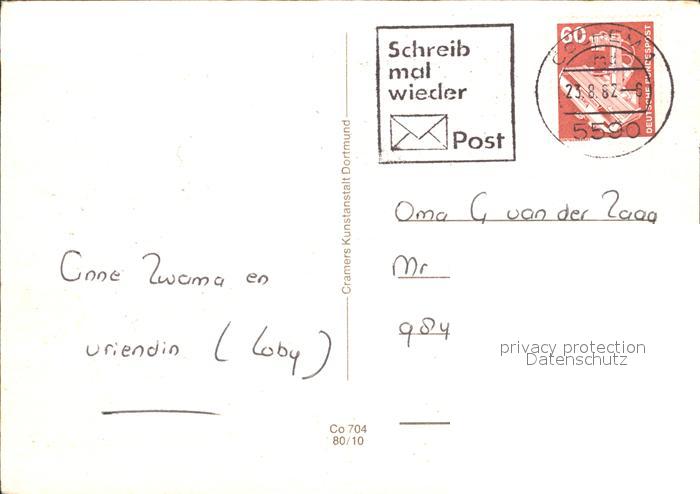 Schreib
mal
wieder
Post
60
DEUTSCHE BUNDESPOST
23.8.82-6
5590
Cramers Kunstanstalt Dortmund
Oma G van der Zaag
Mr
984
Anne Zwama en
vriendin (Loby)
privacy protection
Datenschutz
Co 704
80/10